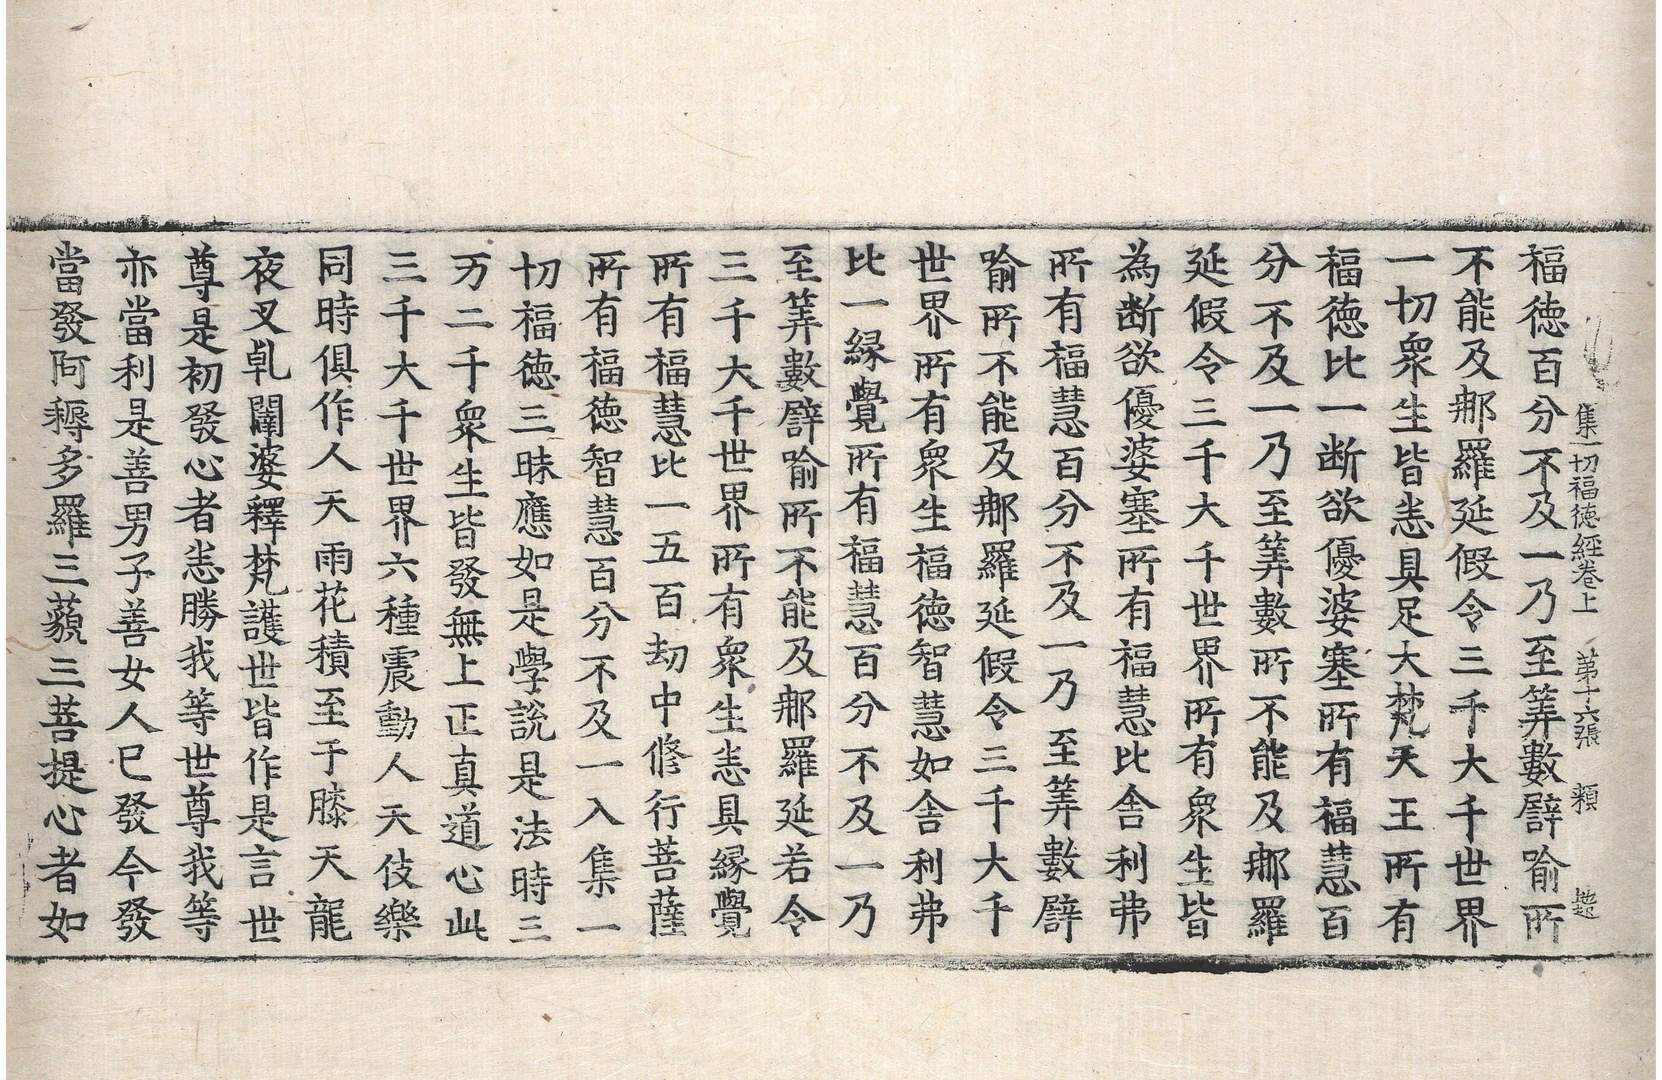 集一切福徳經卷上 第十六張 頼
福徳百分不及一乃至筭數譬喻所
不能及那羅延假令三千大千世界
一切衆生皆悉具足大梵天王所有
福徳比一断欲優婆塞所有福慧百
分不及一乃至筭數所不能及那羅
延假令三千大千世界所有衆生皆
為断欲優婆塞所有福慧比舎利弗
所有福慧百分不及一乃至筭數譬
喻所不能及那羅延假令三千大千
世界所有衆生福徳智慧如舎利弗
比一縁覺所有福慧百分不及一乃
至筭數譬喻所不能及那羅延若令
三千大千世界所有衆生悉具縁覺
所有福慧比一五百劫中修行菩薩
所有福徳智慧百分不及一入集一
切福徳三昧應如是學說是法時三
万二千衆生皆發無上正真道心此
三千大千世界六種震動人天伎樂
同時俱作人天雨花積至于膝天龍
夜叉乹闥婆釋梵護世皆作是言世
尊是初發心者悉勝我等世尊我等
亦當利是善男子善女人已發今發
當發阿耨多羅三藐三菩提心者如